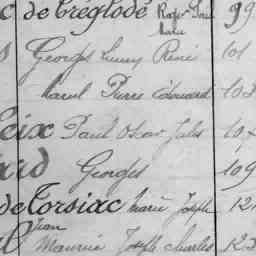 c de bréglodé Roger 99
Marie
Georges Henry René 101
Marcel Pierre édouard 103
eix Paul Oscar Jules 107
ard Georges 109
de Torsiac Marie Joseph 121
Jean
Maurice Joseph Charles 123